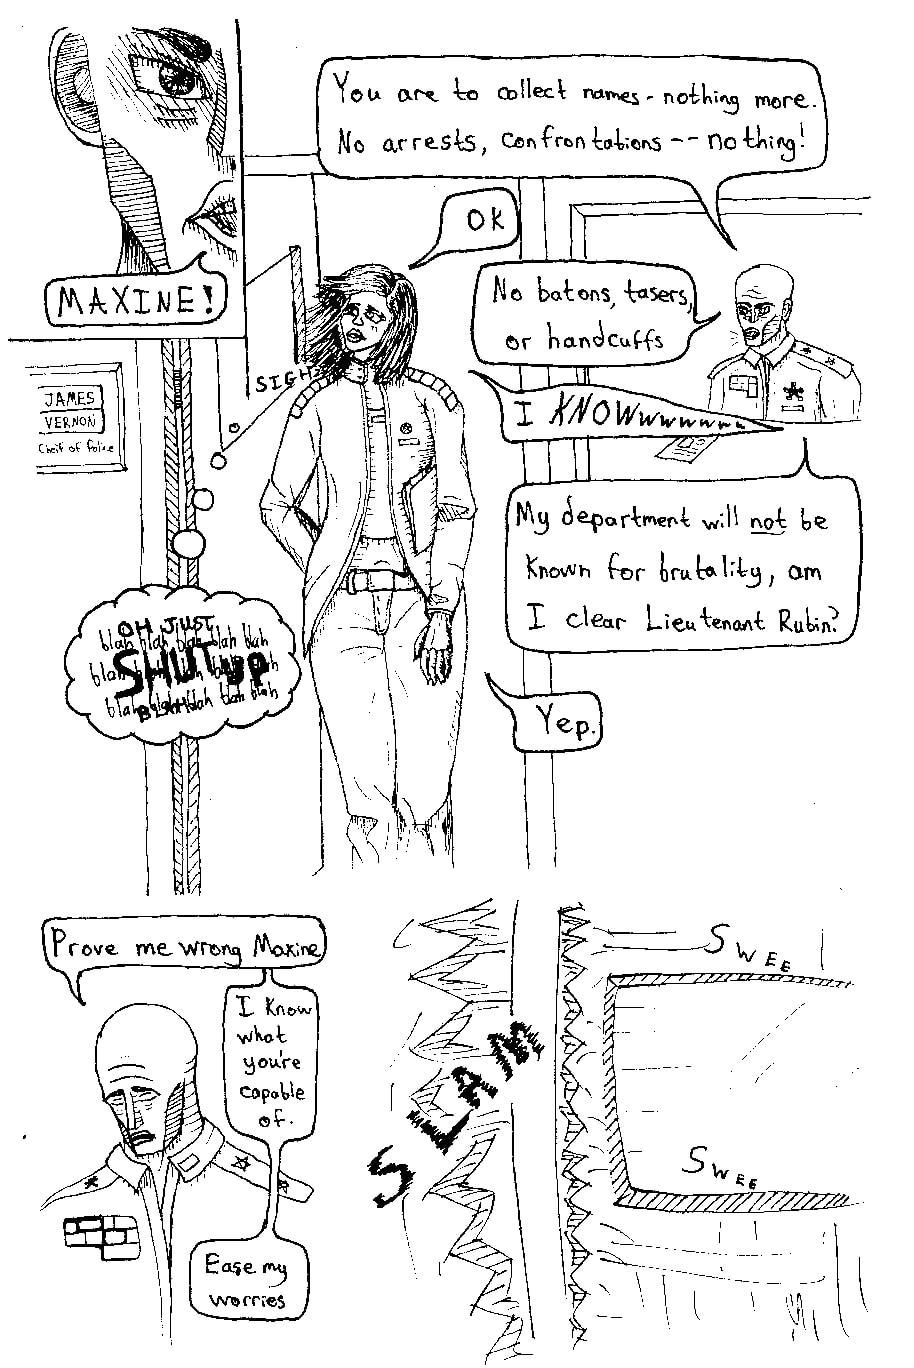 MAXINE!
You are to collect names - nothing more.
No arrests, confrontations -- nothing!
OK
No batons, tasers,
or handcuffs
SIGH
I KNOWwwwwwww
JAMES
VERNON
Cheif of Police
My department will not be
known for brutality, am
I clear Lieutenant Rubin?
OH JUST
blah blah blah blah blah
SHUT up
blah blah
blah blah blah blah
BLAH
Yep.
Prove me wrong Maxine
I know
what
you're
capable
of.
Ease my
worries
SLAM
SWEE
SWEE